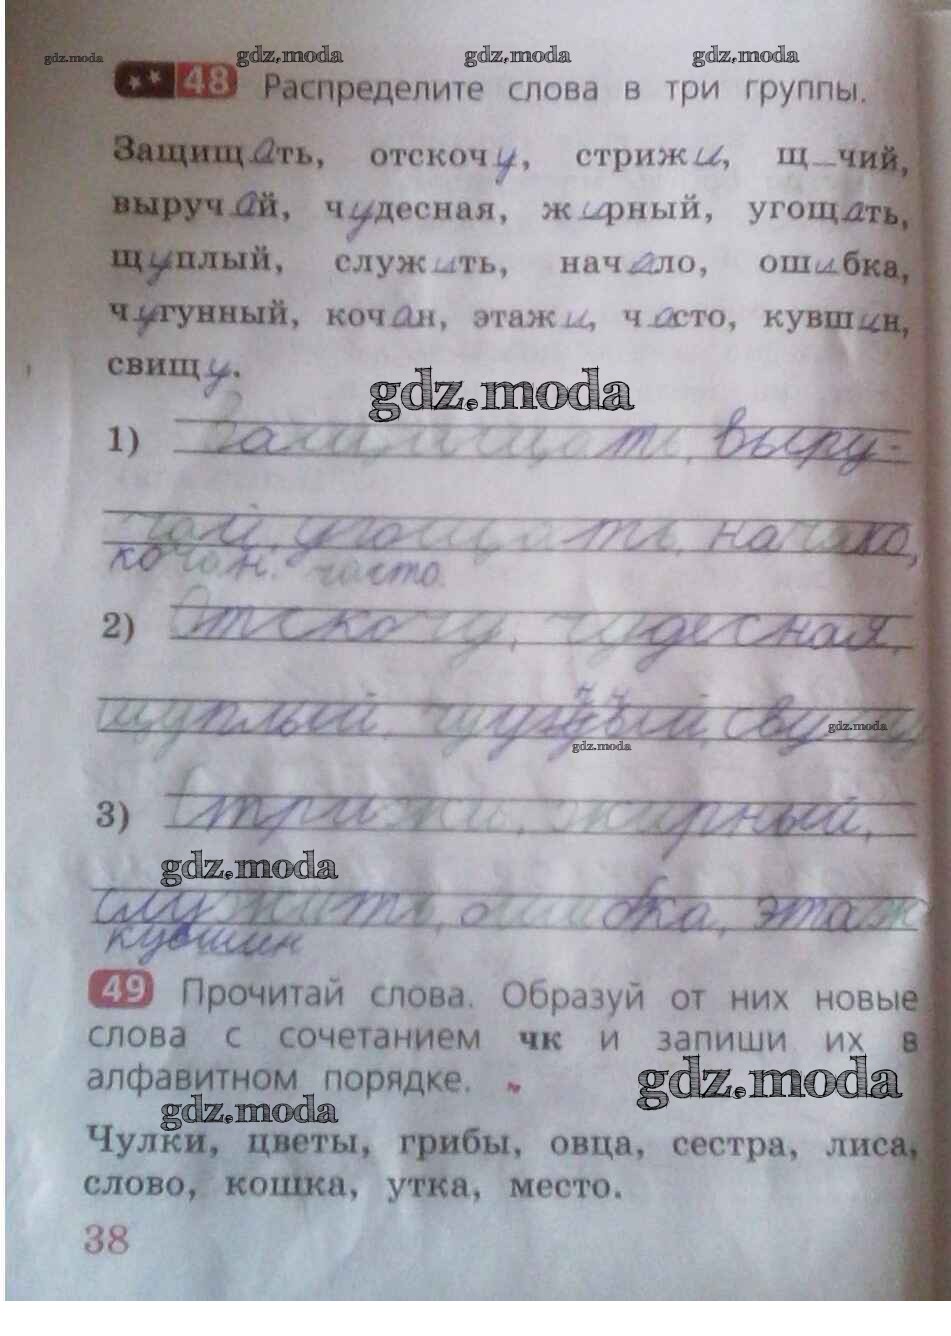 gdz.moda gdz.moda gdz.moda gdz.moda
48 Распределите слова в три группы.
Защищать, отскочу, стрижи, щ_чий,
выручай, чудесная, жирный, угощать,
щуплый, служить, начало, ошибка,
чугунный, кочан, этажи, часто, кувшин,
свищу.
gdz.moda
1) Защищать, выру-
чай угощать, начало,
кочан. часто.
2) Отскочу, чудесная,
щуплый
gdz.moda
gdz.moda
3) Стрижи, жирный,
gdz.moda
служить, ошибка, этаж
кувшин
49 Прочитай слова. Образуй от них новые
слова с сочетанием чк и запиши их в
алфавитном порядке.
gdz.moda
gdz.moda
Чулки, цветы, грибы, овца, сестра, лиса,
слово, кошка, утка, место.
38